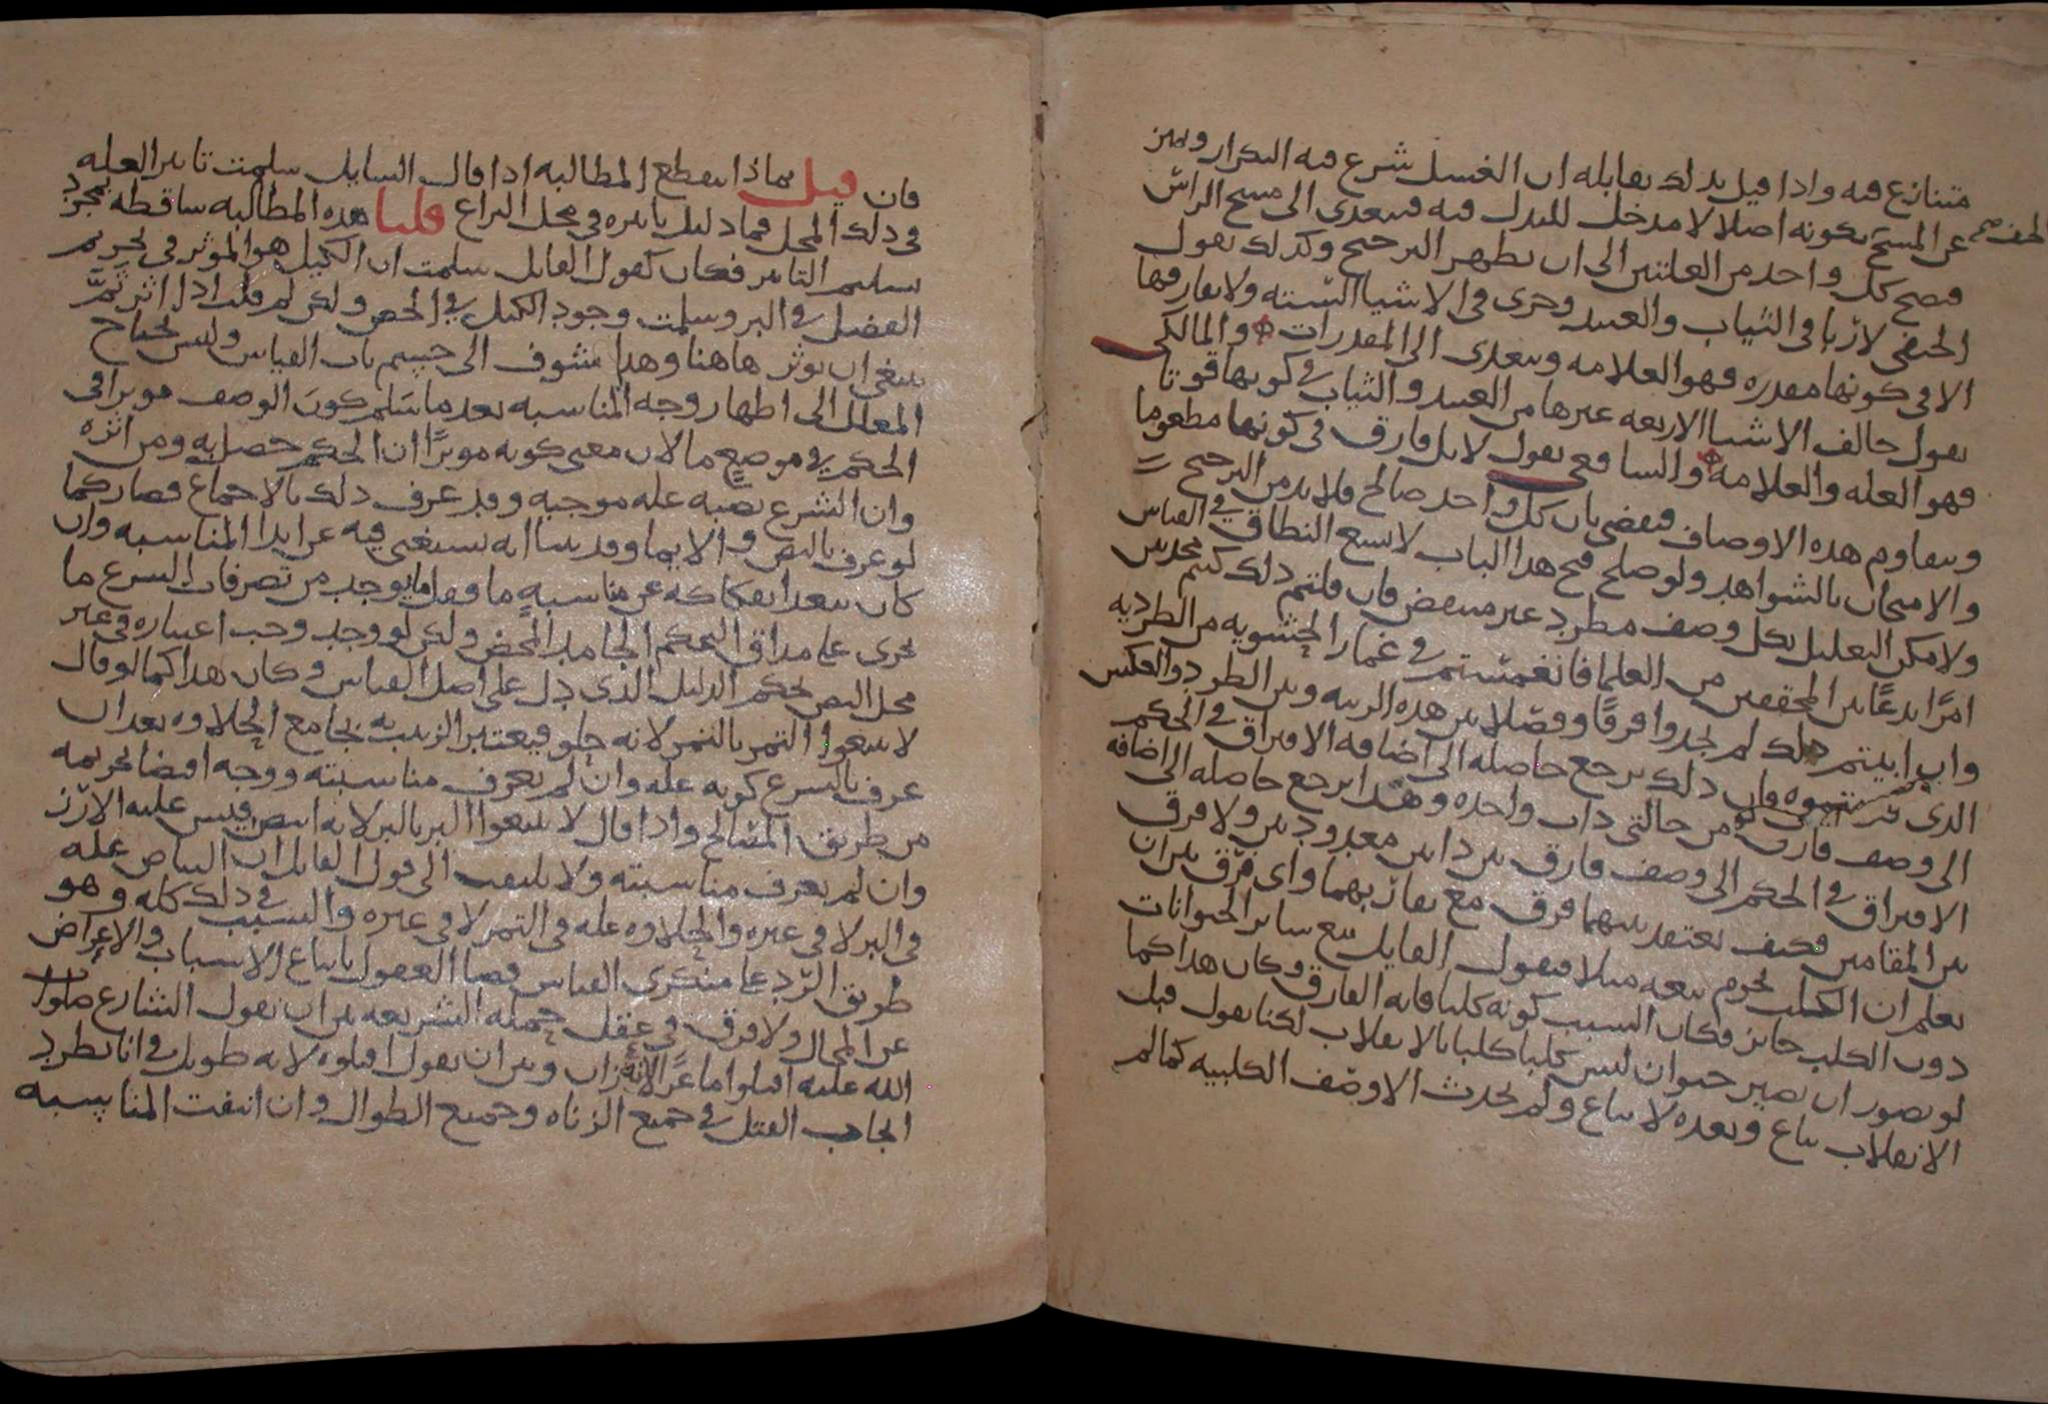 متنازع فيه واذا قيل بدلك يقابله ان الغسل شرع فيه التكرار وميز
الخف صح
عن المسح بكونه اصلا لا مدخل للبدل فيه فيتعدى الى مسح الراس
فيصح كل واحد من العلتين الى ان يظهر الترجيح وكذلك يقول
الحنفي لا ربا في الثياب والعبيد وجرى في الاشيا الستة ولا يفارقها
الا في كونها مقدره فهو العلامه ويتعدى الى المقدرات والمالكي
يقول خالف الاشيا الاربعه غيرها من العبيد والثياب في كونها قوتا
فهو العله والعلامه والشافعي يقول لا بل فارق في كونها مطعوما
ويتقاوم هذه الاوصاف فيقضى بان كل واحد صالح فلا بد من الترجيح
والامتحان بالشواهد ولو صلح فتح هذا الباب لاتسع النطاق في القياس
ولامكن التعليل بكل وصف مطرد غير منتقض فان قلتم ذلك كنتم محدثين
امرًا بدعًا بين المحققين من العلما فانغمستم في غمار الحشويه من الطرديه
وان ابيتم ذلك لم تجدوا فرقًا وفصلا بين هذه الرتبه وبين الطرد والعكس
الذي فان ذلك يرجع حاصله الى اضافه الافتراق في الحكم
الى وصف فارق من حالتي ذات واحده وهذا يرجع حاصله الى اضافة
الافتراق في الحكم الى وصف فارق بين ذاتين معدودتين ولا فرق
بين المقامين فكيف يعتقد بينهما فرق مع تقاربهما واي فرق بين ان
يعلم ان الكلب يحرم بيعه مثلا فيقول القايل بيع ساير الحيوانات
دون الكلب جائز فكان السبب كونه كلبا فانه الفارق وكان هذا كما
لو تصور ان يصير حيوان ليس كلبا كلبا بالانقلاب لكنا نقول قبل
الانقلاب يباع وبعده لا يباع ولم يحدث الا وصف الكلبيه كما لم
فان قيل بماذا تنقطع المطالبه اذا قال السايل سلمت تاثير العله
في ذلك المحل فما دليل تاثيره في محل النزاع قلنا هذه المطالبه ساقطه بمجرد
تسليم التاثير فكان كقول القايل سلمت ان الكيل هو الموثر في تحريم
الفضل في البر وسلمت وجود الكيل في الجص ولكن لم قلت اذا اثر ثمَّ
ينبغي ان يوثر هاهنا وهذا تشوف الى حسم باب القياس وليس يحتاج
المعلل الى اظهار وجه المناسبه بعد ما سَلم كونَ الوصف موثرا في
الحكم في موضعٍ ما لان معنى كونه موثرًا ان الحكم حصل به ومن اثره
وان الشرع نصبه عله موجبه وقد عرف ذلك بالاجماع فصار كما
لو عرف بالنص والايما وقد بينا انه يستغنى فيه عن ابدا المناسبه وان
كان يبعد انفكاكه عن مناسبةٍ ما فقل ما يوجد من تصرفات الشرع ما
يجرى على مذاق التحكم الجامد المحض ولكن لو وجد وجب اعتباره في غير
محل النص بحكم الدليل الذي دل على اصل القياس وكان هذا كما لو قال
لا تبيعوا التمر بالتمر لانه حلو فيعتبر الزبيب به بجامع الحلاوه بعد ان
عرف بالشرع كونه عله وان لم يعرف مناسبته ووجه اقتضا تحريمه
من طريق المصالح واذا قال لا تبيعوا البر بالبر لانه ابيض قيس عليه الارز
وان لم يعرف مناسبته ولا يلتفت الى قول القايل ان البياض عله
في البر لا في غيره والحلاوه عله في التمر لا في غيره والسبب في ذلك كله وهو
طريق الرّد على منكرى القياس قضا العقول باتباع الاسباب والاعراض
عن المحال ولا فرق في عقل حمله الشريعه بين ان يقول الشارع صلوات
الله عليه اقتلوا ماعزًا لانه زان وبين ان يقول اقتلوه لانه طويل في انا نطرد
ايجاب القتل في جميع الزناه وجميع الطوال وان انتفت المناسبه